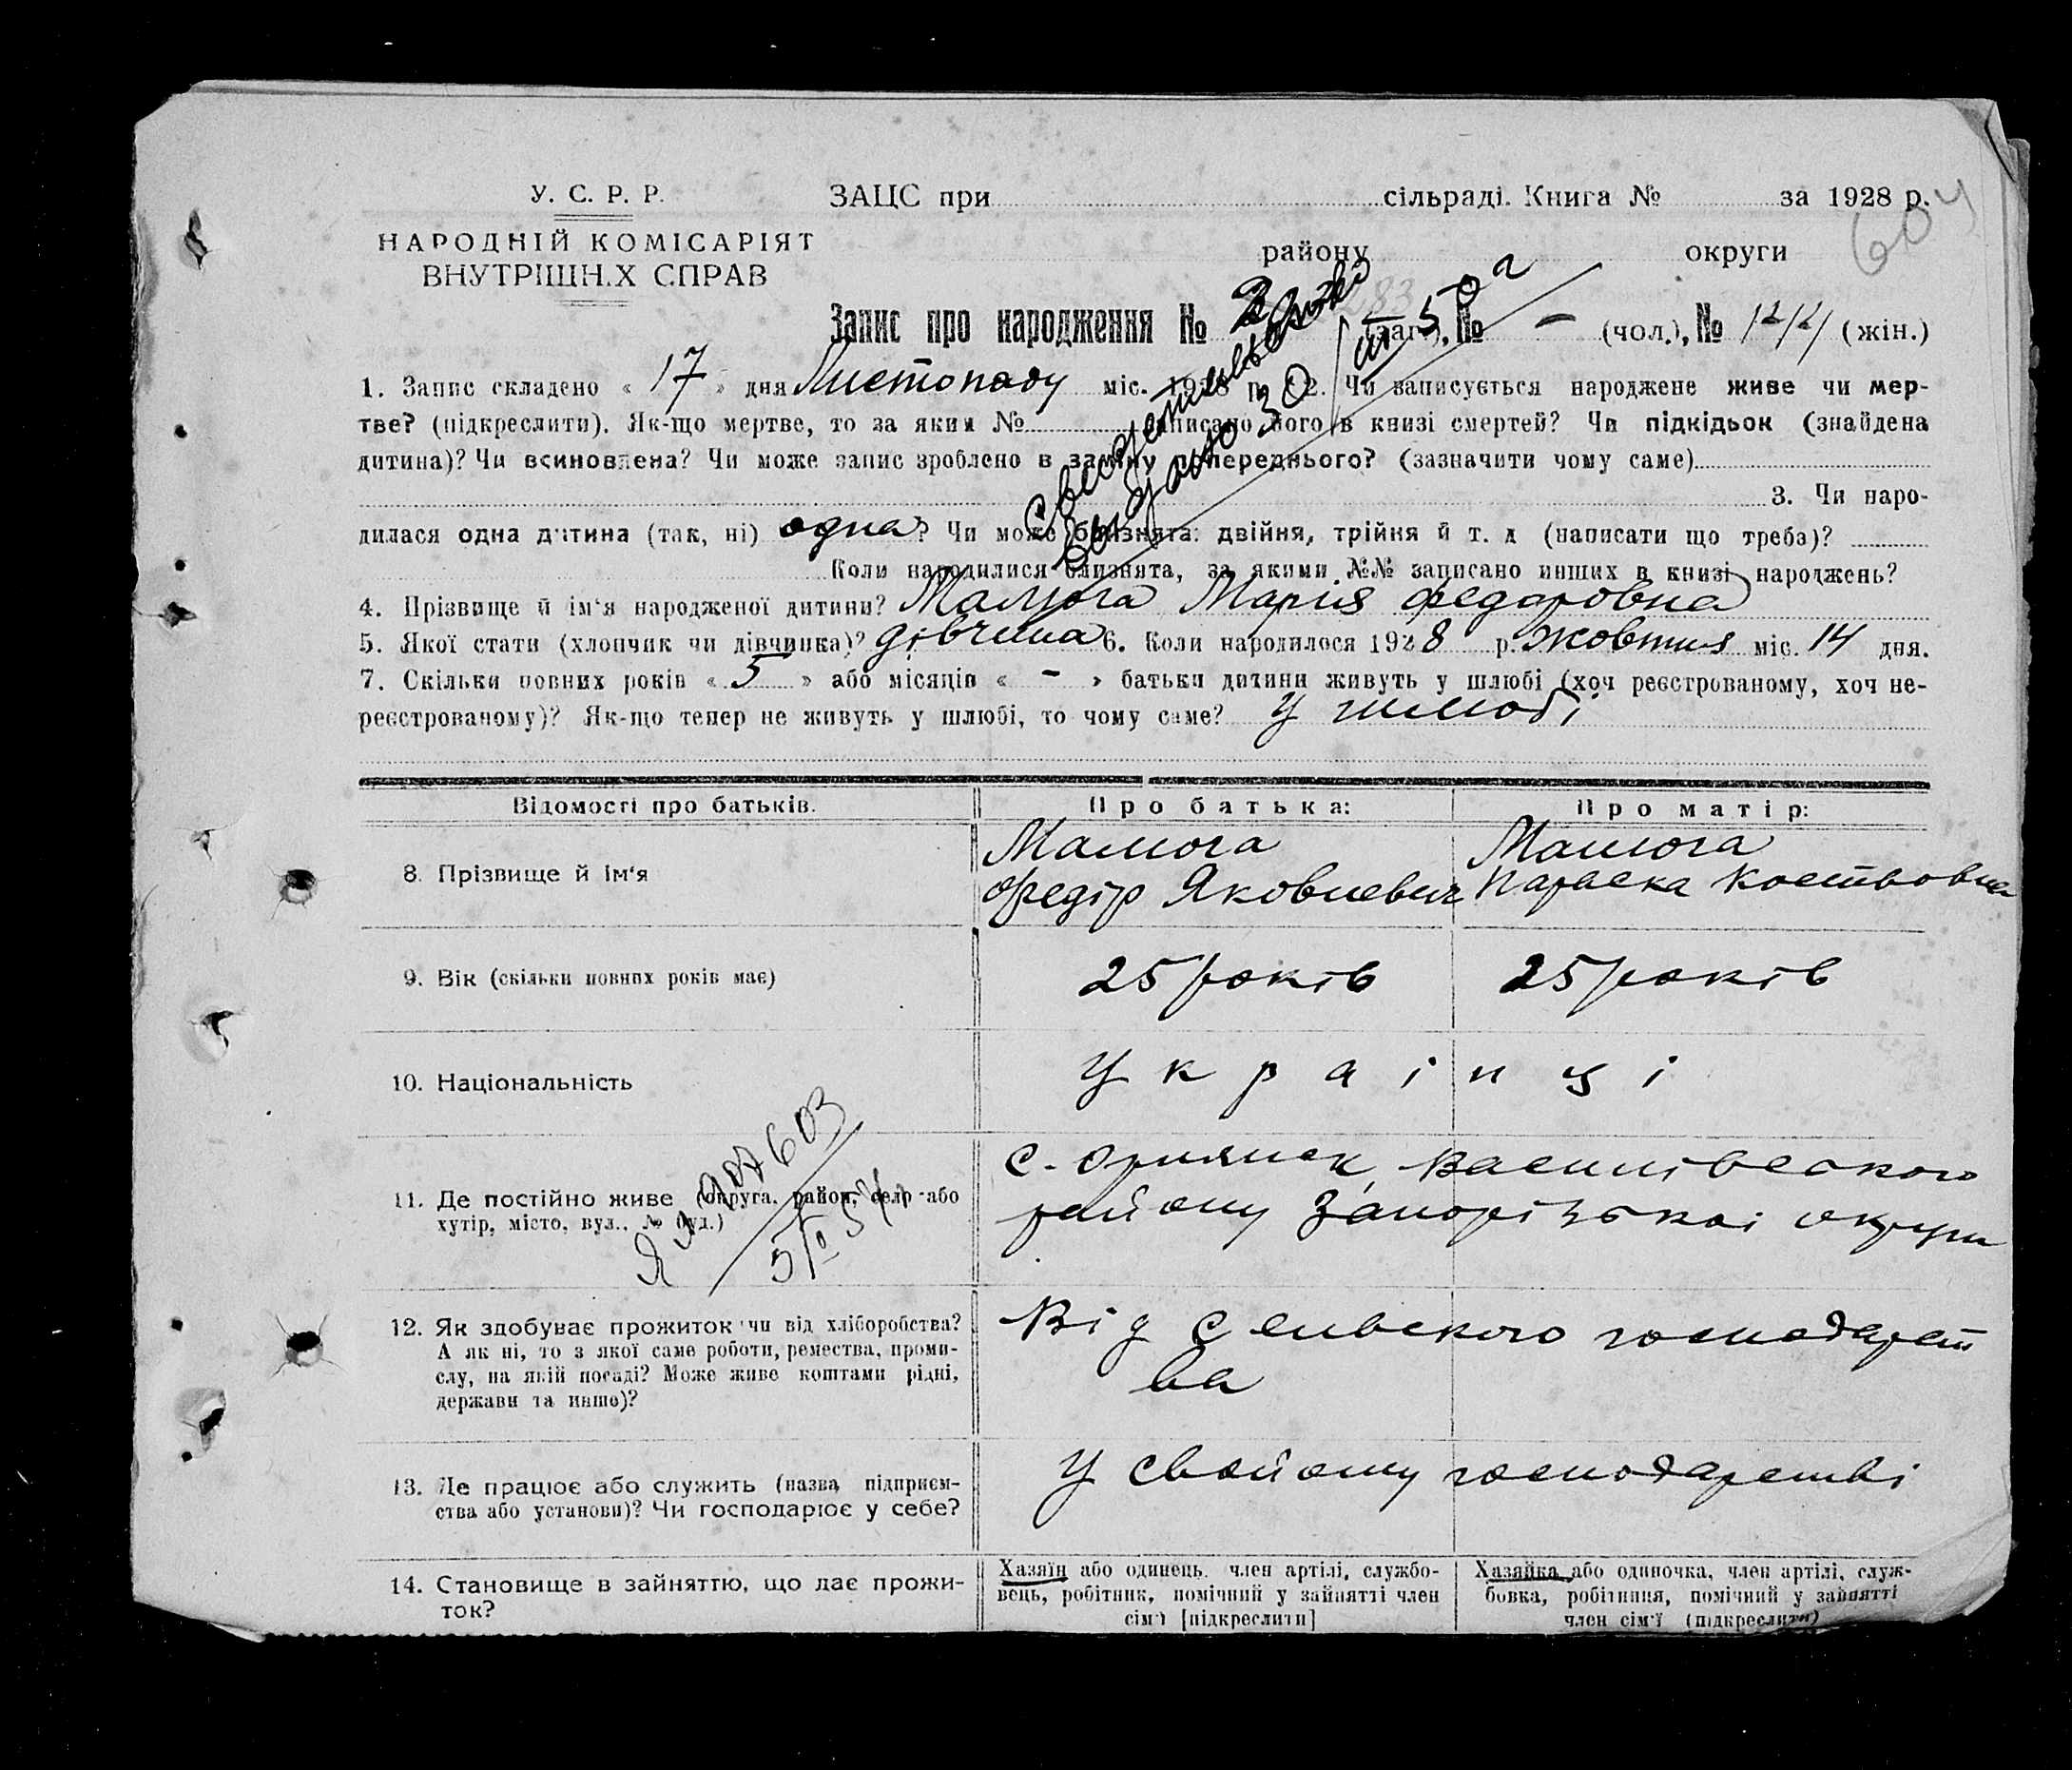 У. С. Р. Р.
НАРОДНІЙ КОМІСАРІЯТ
ВНУТРІШН.Х СПРАВ
ЗАЦС при сільраді. Книга № за 1928 р.
604
району округи
Запис про народження № (заг.), № – (чол.), № (жін.)
Свидетельство
Выдано 30/III 50 г
1. Запис складено « 17 » дня Листопаду міс. 1928 р. 2. Чи записується народжене живе чи мер-
тве? (підкреслити). Як-що мертве, то за яким № записано його в книзі смертей? Чи підкідьок (знайдена
дитина)? Чи всиновлена? Чи може запис зроблено в заміну попереднього? (зазначити чому саме)
3. Чи наро-
дилася одна дитина (так, ні) одна? Чи може близнята: двійня, трійня й т. д (написати що треба)?
Коли народилися близнята, за якими №№ записано инших в книзі народжень?
4. Прізвище й ім'я народженої дитини? Малюга Марія Федоровна
5. Якої стати (хлопчик чи дівчинка)? дівчина 6. Коли народилося 1928 р. Жовтня міс. 14 дня.
7. Скільки повних років « 5 » або місяців « - » батьки дитини живуть у шлюбі (хоч реєстрованому, хоч не-
реєстрованому)? Як-що тепер не живуть у шлюбі, то чому саме? У шлюбі
Відомості про батьків. Про батька: Про матір:
8. Прізвище й ім'я
Малюга
Федір Яковлевич
Малюга
Параска
9. Вік (скільки повних років має) 25 років 25 років
10. Національність Українці
11. Де постійно живе (округа, район, село або
хутір, місто, вул., № буд.)
с. Василівского
району Запорізькоі округи
12. Як здобуває прожиток чи від хліборобства?
А як ні, то з якої саме роботи, ремества, проми-
слу, на якій посаді? Може живе коштами рідні,
держави та инше)?
Від Сельвского господарст
ва
13. Де працює або служить (назва підприєм-
ства або установи)? Чи господарює у себе?
У свойому господарстві
14. Становище в зайняттю, що дає прожи-
ток?
Хазяїн або одинець член артілі, службо-
вець, робітник, помічний у зайнятті член
сім'ї [підкреслити]
Хазяйка або одиночка, член артілі, служ-
бовка, робітниця, помічний у зайнятті
член сім'ї (підкреслити)